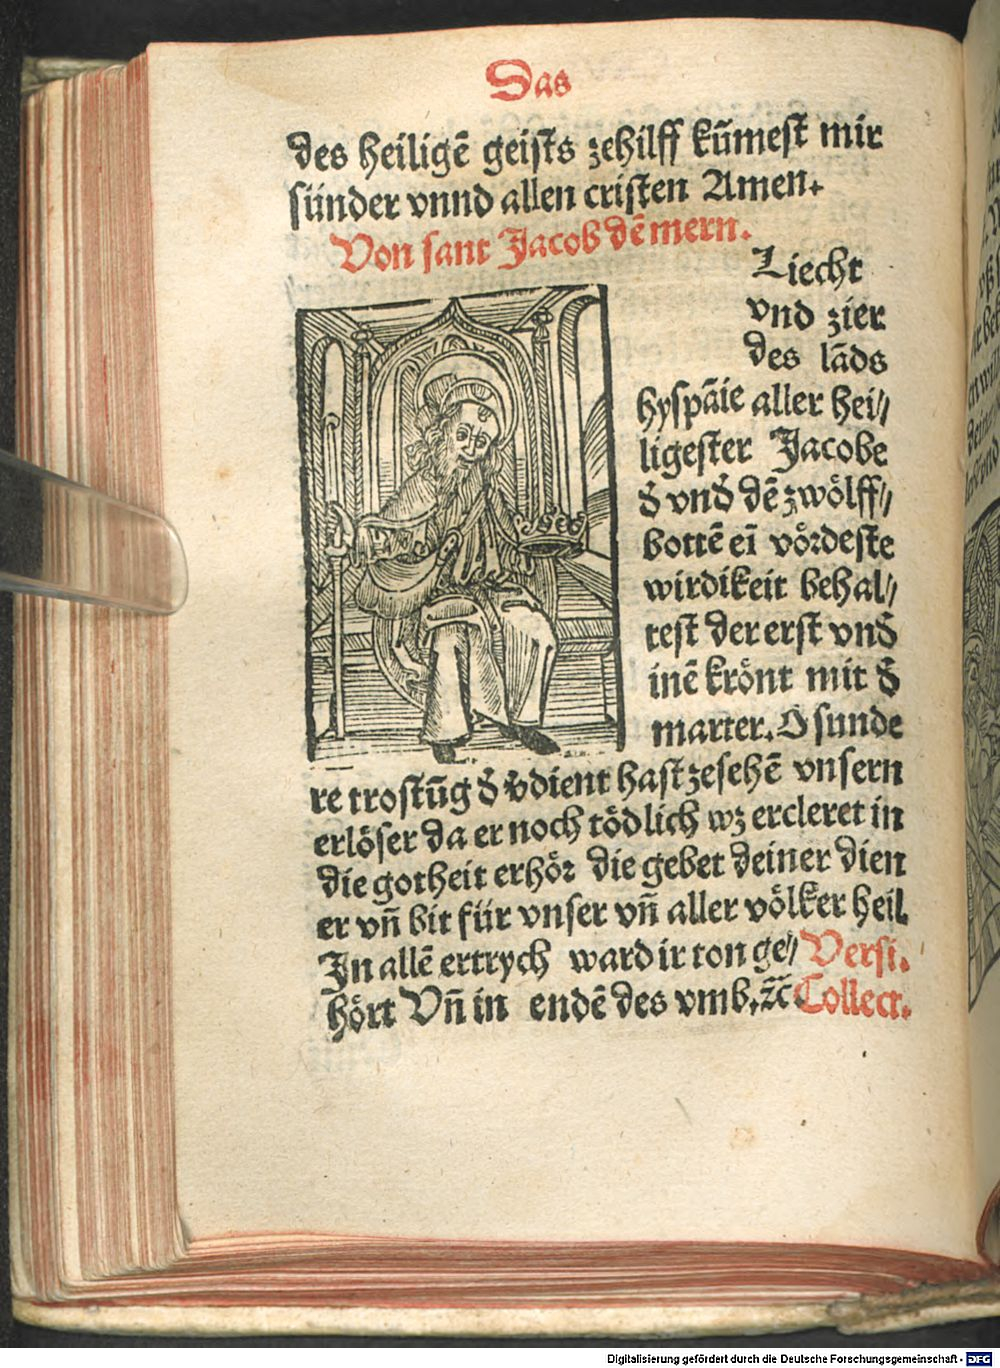 Das
des heiligē geists zehilff kūmest mir
sünder vnnd allen cristen Amen.
Von sant Jacob dē mern.
Liecht
vnd zier
des lāds
hyspāie aller hei//
ligester Jacobe
đ vnđ dē zwölff//
bottē eī vördeste
wirdikeit behal//
test der erst vnđ
inē krönt mit đ
marter. O sunde
re trostūg đ v̄dient hast zesehē vnsern
erlöser da er noch tödlich wz ercleret in
die gotheit erhör die gebet deiner dien
er vn̄ bit für vnser vn̄ aller völker heil.
In allē ertrych ward ir ton ge// Versi.
hört Vn̄ in endē des vmb. zc̄ Collect.
Digitalisierung gefördert durch die Deutsche Forschungsgemeinschaft - DFG